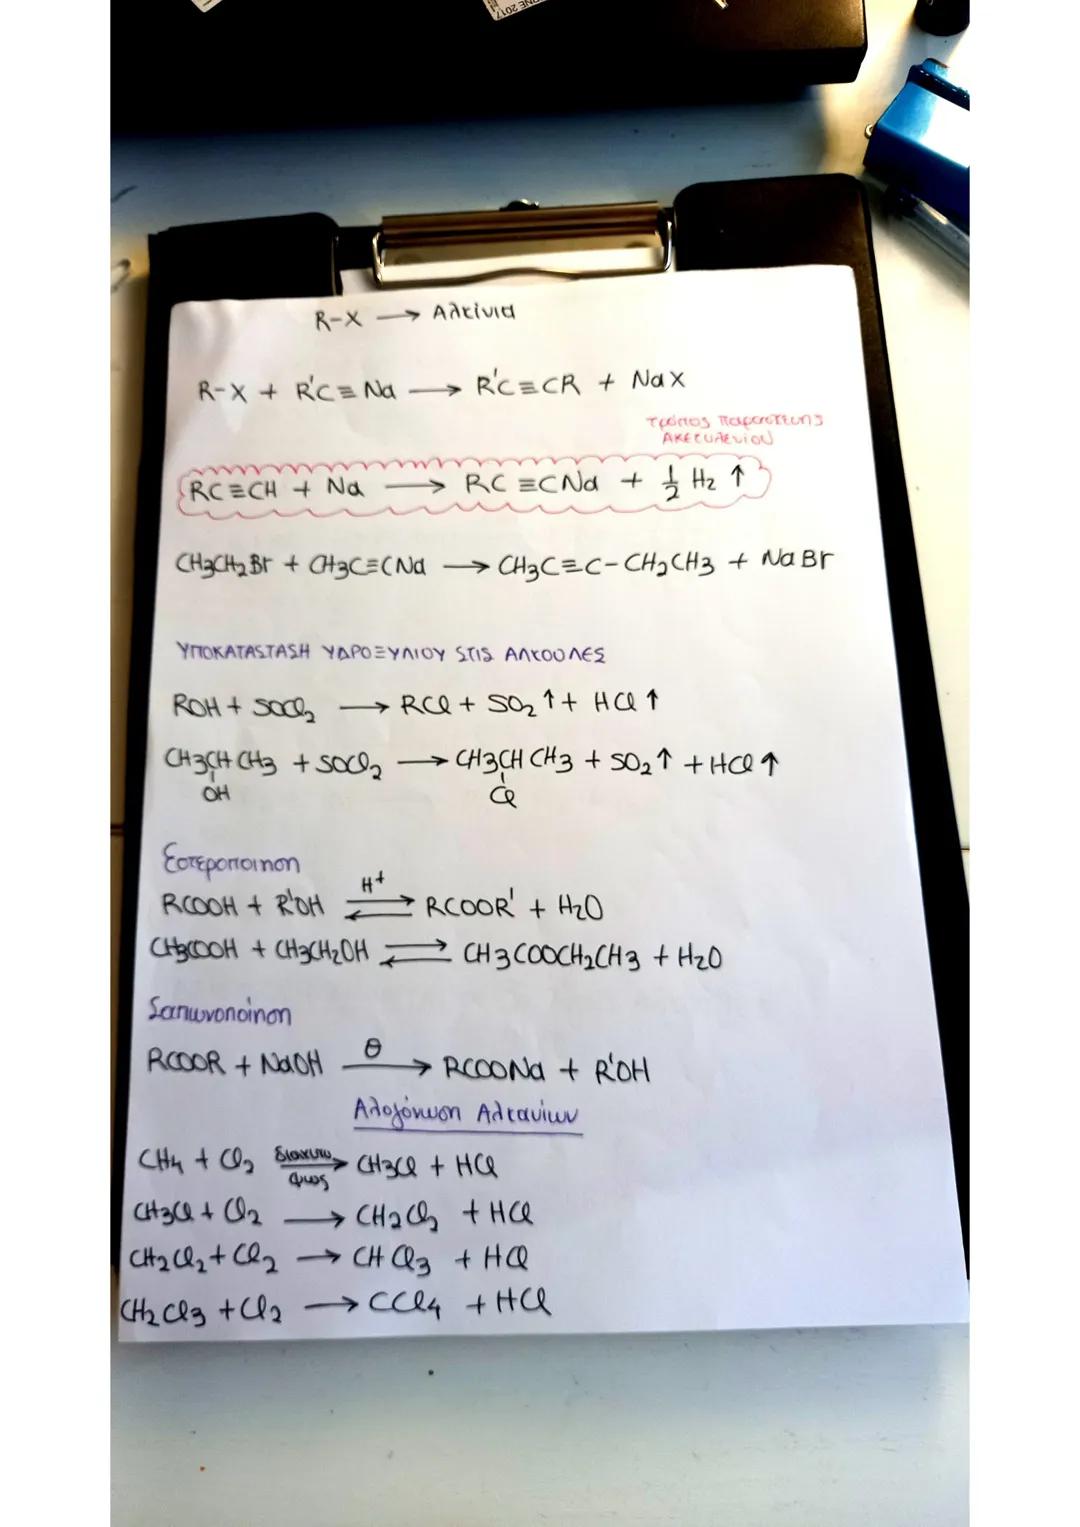 R-X → Αλκίνια
R-X + R'C≡Na → R'C≡CR + NaX
Τρόπος Παρασκευής
Ακετυλενίου
RC≡CH + Na → RC≡CNa + 1/2 H2 ↑
CH3CH2Br + CH3C≡CNa → CH3C≡C-CH2CH3 + NaBr
ΥΠΟΚΑΤΑΣΤΑΣΗ ΥΔΡΟΞΥΛΙΟΥ ΣΤΙΣ ΑΛΚΟΟΛΕΣ
ROH + SOCl2 → RCl + SO2 ↑ + HCl ↑
CH3CHCH3 + SOCl2 → CH3CHCH3 + SO2 ↑ + HCl ↑
OH Cl
Εστεροποιηση
H+
RCOOH + R'OH ⇌ RCOOR' + H2O
CH3COOH + CH3CH2OH ⇌ CH3COOCH2CH3 + H2O
Σαπωνοποίηση
θ
RCOOR + NaOH → RCOONa + R'OH
Αλογόνωση Αλκανίων
CH4 + Cl2 → CH3Cl + HCl
φως
CH3Cl + Cl2 → CH2Cl2 + HCl
CH2Cl2 + Cl2 → CHCl3 + HCl
CH2Cl3 + Cl2 → CCl4 + HCl